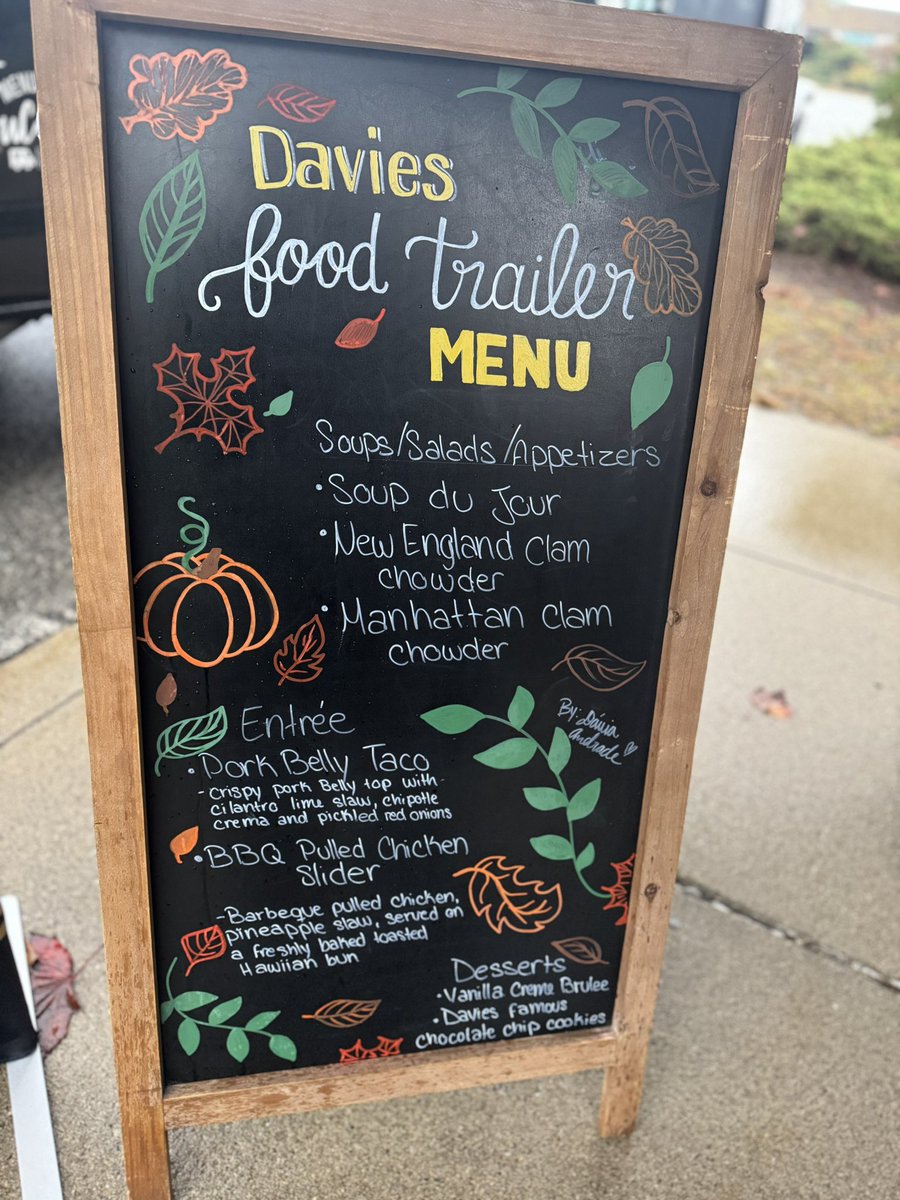 Davies
food trailer
MENU
Soups/Salads/Appetizers
• Soup du Jour
• New England Clam
chowder
• Manhattan Clam
chowder
By: Dávia
Andrade
Entrée
• Pork Belly Taco
- crispy pork Belly top with
cilantro lime slaw, chipotle
crema and pickled red onions
• BBQ Pulled Chicken
Slider
- Barbeque pulled chicken,
pineapple slaw, served on
a freshly baked toasted
Hawiian bun
Desserts
• Vanilla Creme Brulee
• Davies famous
chocolate chip cookies